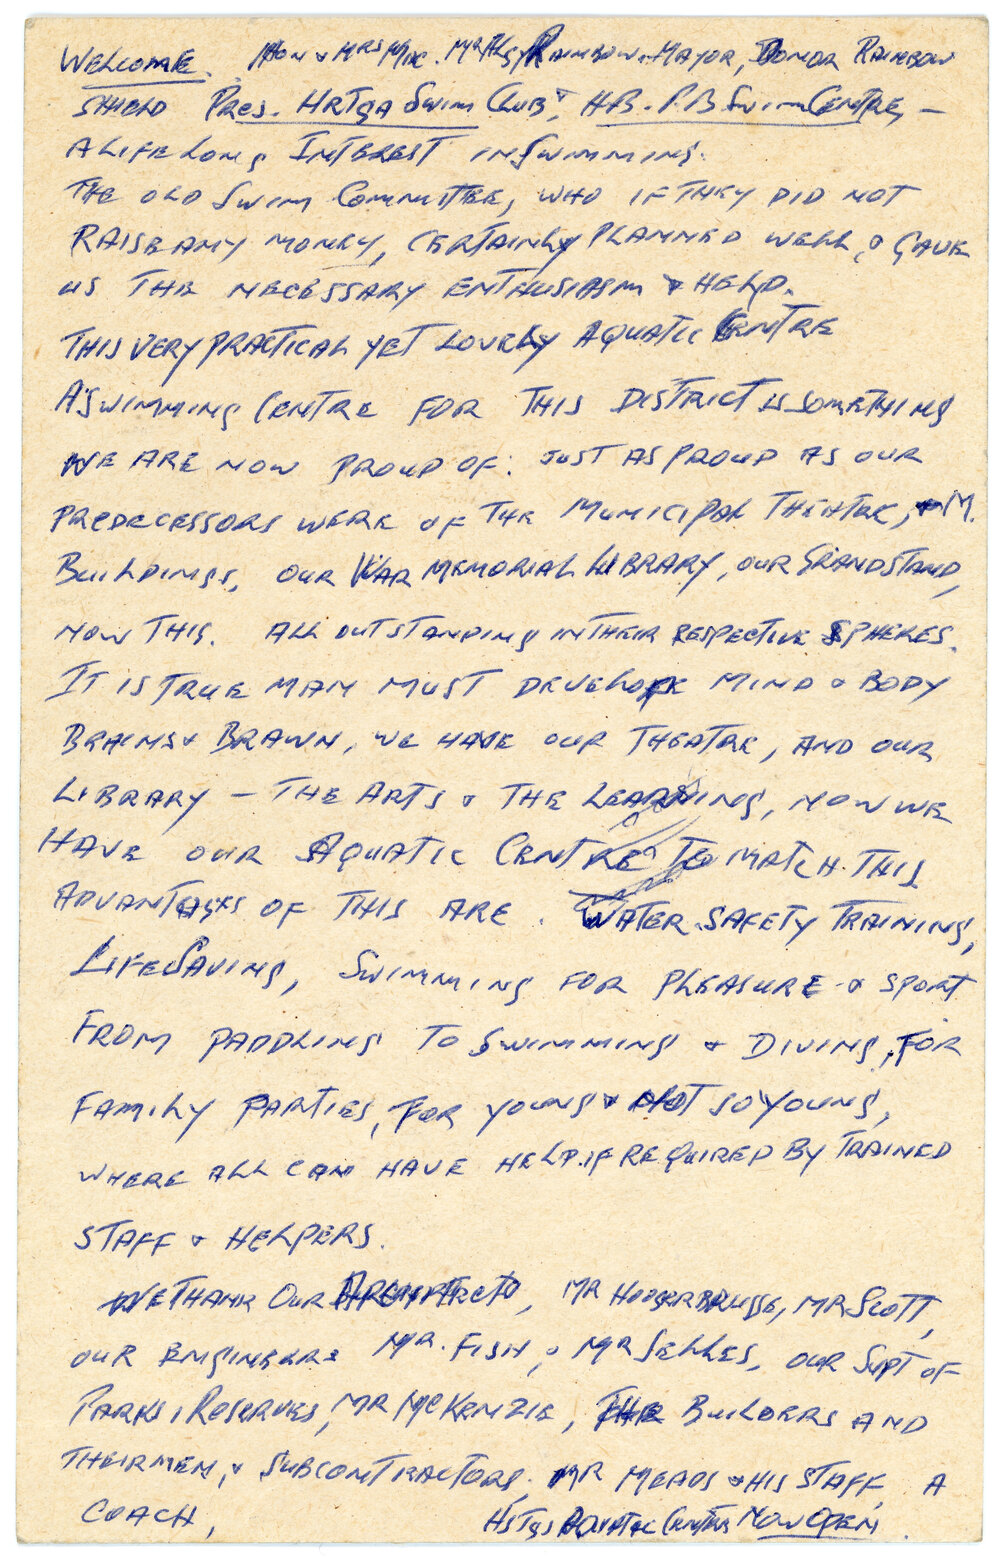 WELCOME. HON & MRS MAC. MR ALGY RAINBOW. MAYOR, DONOR RAINBOW
SHIELD PRES. HRTGA SWIM CLUB, & H.B. P.B SWIM CENTRE, —
A LIFE LONG INTEREST IN SWIMMING.
THE OLD SWIM COMMITTEE, WHO IF THEY DID NOT
RAISE ANY MONEY, CERTAINLY PLANNED WELL, & GAVE
US THE NECESSARY ENTHUSIASM & HELP.
THIS VERY PRACTICAL YET LOVELY AQUATIC CENTRE
A SWIMMING CENTRE FOR THIS DISTRICT IS SOMETHING
WE ARE NOW PROUD OF. JUST AS PROUD AS OUR
PREDECESSORS WERE OF THE MUNICIPAL THEATRE, & M.
BUILDINGS, OUR WAR MEMORIAL LIBRARY, OUR GRANDSTAND,
NOW THIS. ALL OUTSTANDING IN THEIR RESPECTIVE SPHERES.
IT IS TRUE MAN MUST DEVELOPE MIND & BODY
BRAINS & BRAWN, WE HAVE OUR THEATRE, AND OUR
LIBRARY — THE ARTS & THE LEARNING, NOW WE
HAVE OUR AQUATIC CENTRE TO MATCH THIS
ADVANTAGES OF THIS ARE. WATER SAFETY TRAINING,
LIFESAVING, SWIMMING FOR PLEASURE & SPORT
FROM PADDLING TO SWIMMING & DIVING, FOR
FAMILY PARTIES, FOR YOUNG & NOT SO YOUNG,
WHERE ALL CAN HAVE HELP IF REQUIRED BY TRAINED
STAFF & HELPERS.
WE THANK OUR ARCHITECTS, MR HOOGERBRUGGE, MR SCOTT,
OUR ENGINEERS MR. FISH, & MR SELLES, OUR SUPT OF
PARKS & RESERVES, MR MCKENZIE, THE BUILDERS AND
THEIR MEN, & SUBCONTRACTORS, MR MEADS & HIS STAFF, A
COACH, HSTGS AQUATIC CENTRE NOW OPEN.